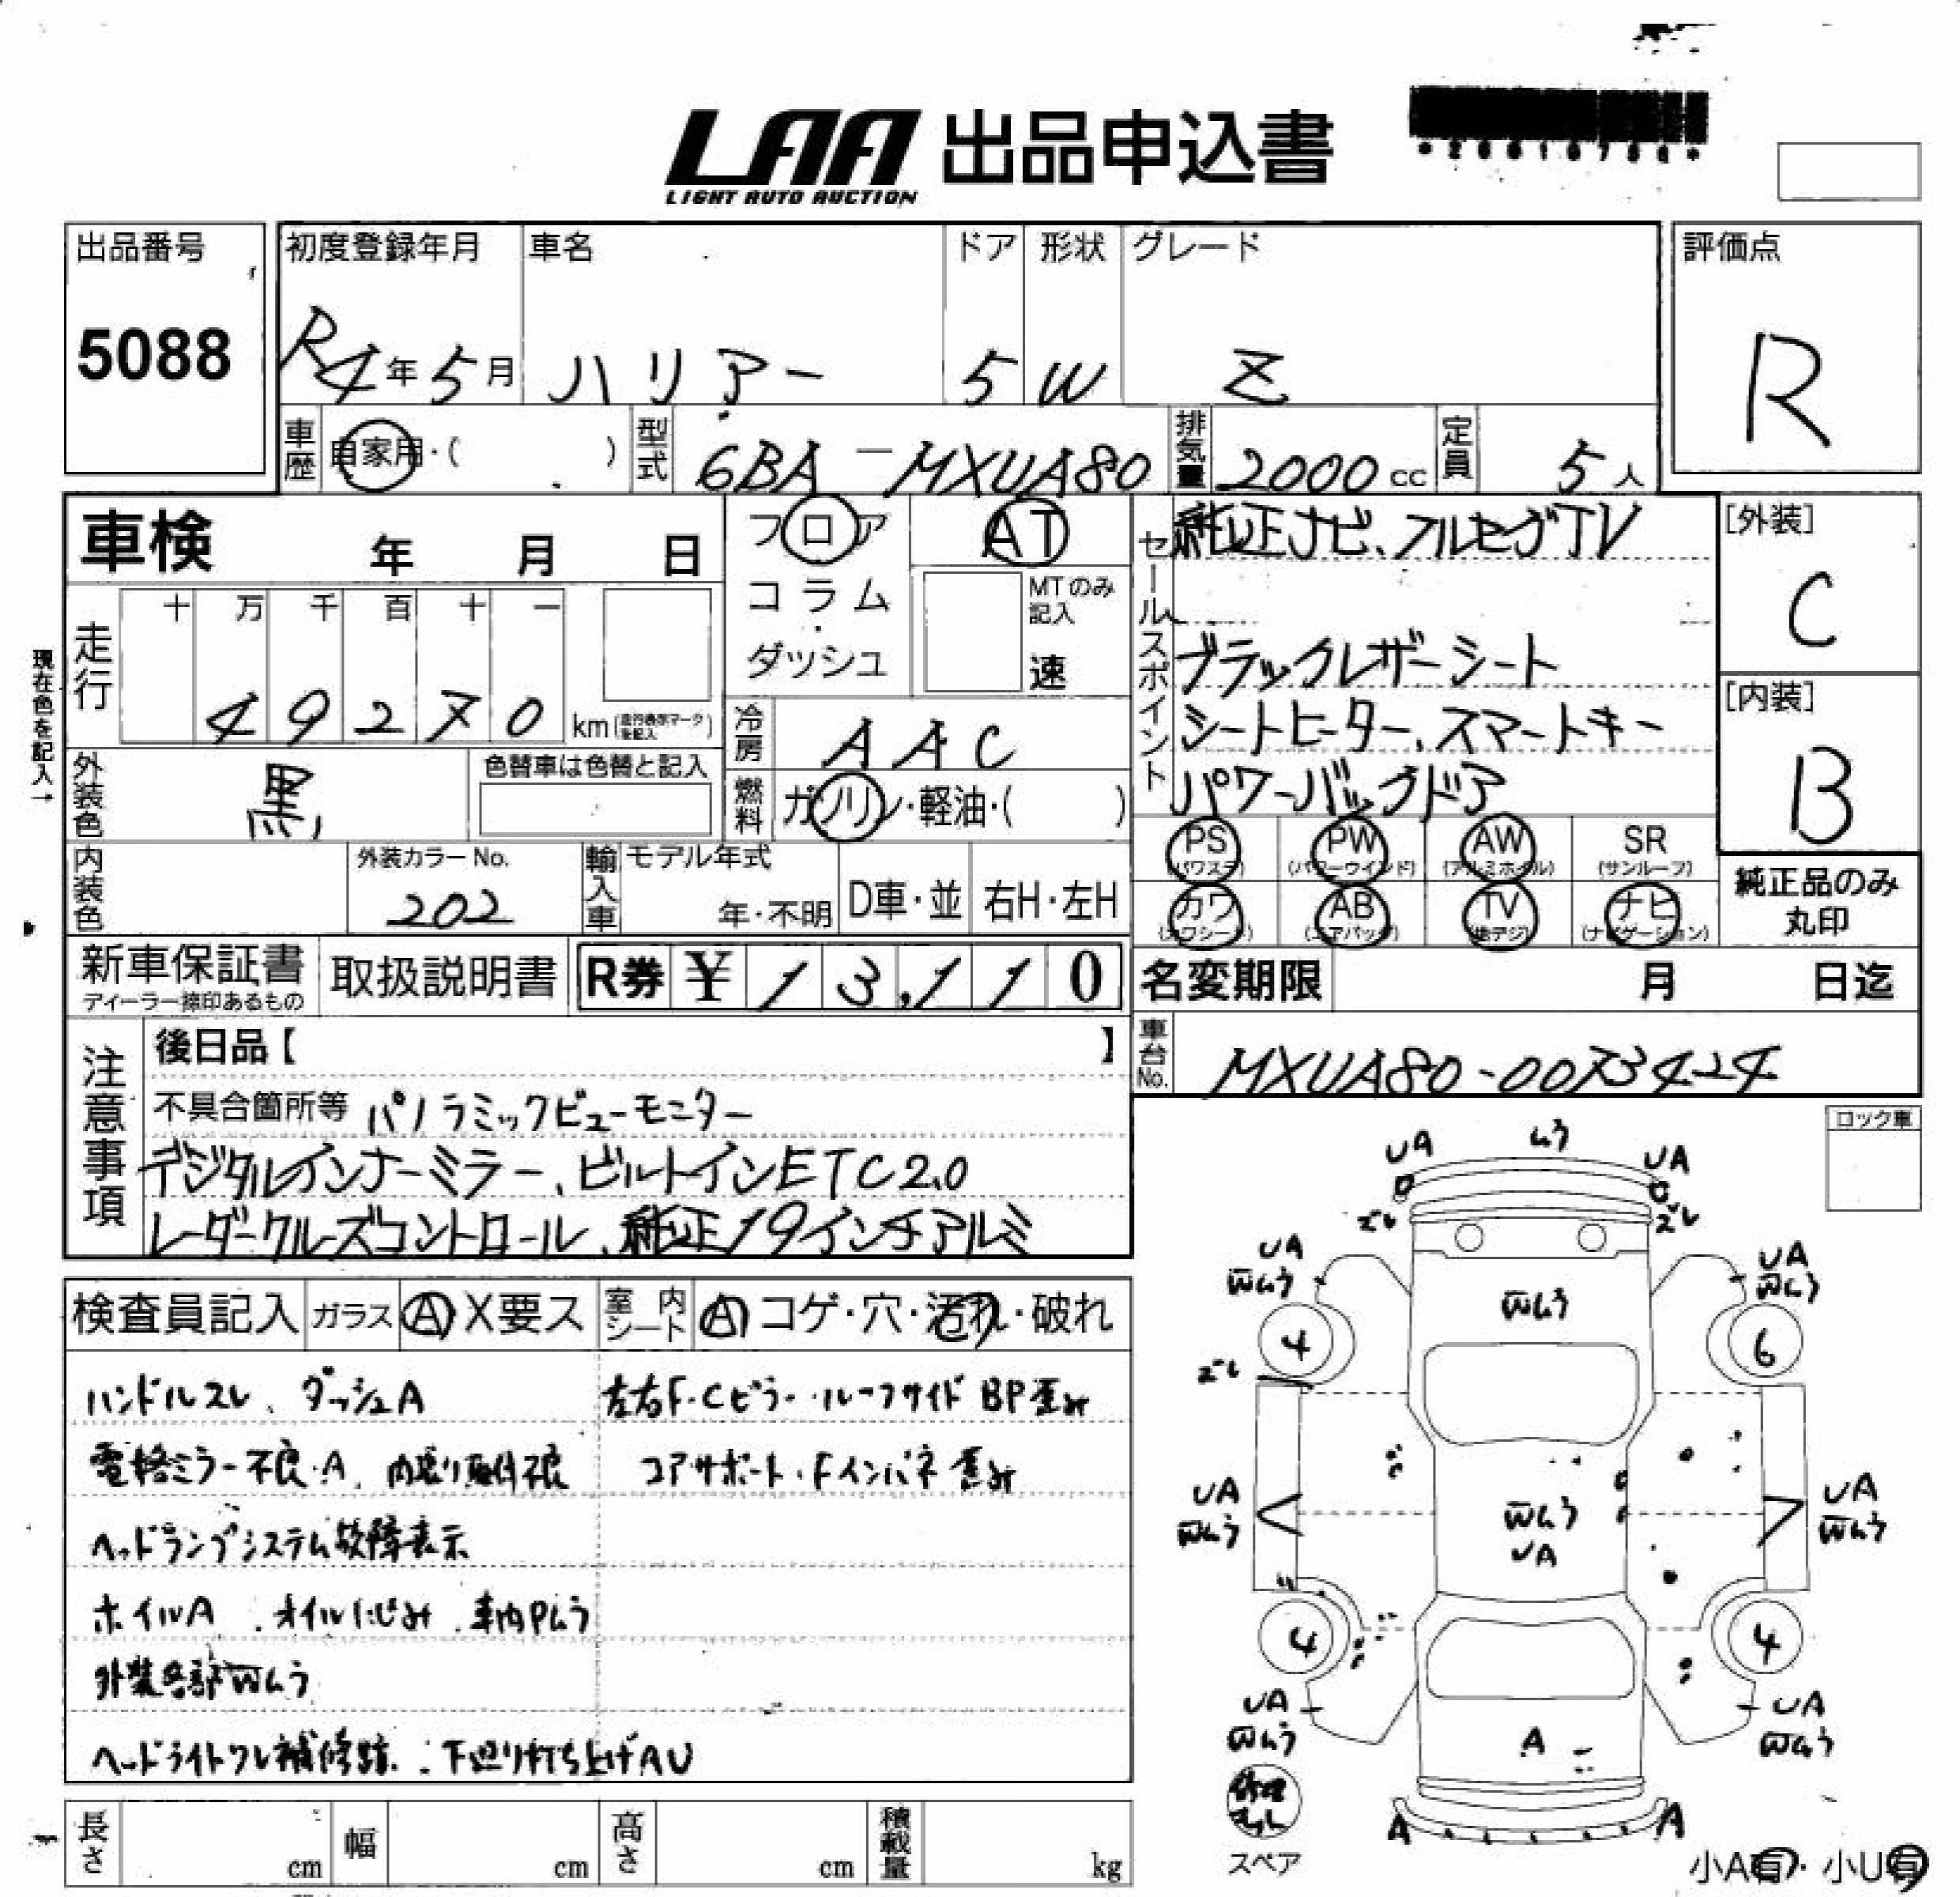 LAA 出品申込書
LIGHT AUTO AUCTION
出品番号
5088
初度登録年月
R4年5月
車名
ハリアー
ドア
5
形状
W
グレード
Z
評価点
R
車歴
自家用・( )
型式
6BA-MXUA80
排気量
2000cc
定員
5人
車検 年 月 日
フロア
コラム
ダッシュ
AT
MTのみ
記入
速
セールスポイント
純正ナビ、フルセグTV
ブラックレザーシート
シートヒーター、スマートキー
パワーバックドア
[外装]
C
[内装]
B
現在色を記入→
走行
十 万 千 百 十 一
49270
km
冷房
AAC
外装色
黒
色替車は色替と記入
燃料
ガソリン・軽油・( )
内装色
外装カラーNo.
202
輸入車
モデル年式
年・不明
D車・並
右H・左H
PS
(パワステ)
PW
(パワーウインド)
AW
(アルミホイル)
SR
(サンルーフ)
カワ
(カワシート)
AB
(エアバッグ)
TV
(地デジ)
ナビ
(ナビゲーション)
純正品のみ
丸印
新車保証書
ディーラー捺印あるもの
取扱説明書
R券 ¥13,110
名変期限 月 日迄
車台No.
MXUA80-0073424
注意事項
後日品【 】
不具合箇所等 パノラミックビューモニター
デジタルインナーミラー、ビルトインETC2.0
レーダークルーズコントロール、純正19インチアルミ
ロック車
検査員記入
ガラス
A X要ス
室内
シート
A コゲ・穴・汚れ・破れ
ハンドルスレ、ダッシュA
左右F・Cピラー・ルーフサイド BP歪み
電格ミラー不良・A、内張り取付不良
コアサポート、Fインパネ歪み
ヘッドランプシステム故障表示
ホイルA、オイルにじみ、車内Pムラ
外装各部Wムラ
ヘッドライトワレ補修跡、下廻り打ち上げAU
UA
ムラ
UA
ズレ
ズレ
UA
Wムラ
Wムラ
UA
Wムラ
4
6
ズレ
UA
Wムラ
Wムラ
UA
UA
Wムラ
4
4
UA
Wムラ
A
UA
Wムラ
修理キット
スペア
A
A
小A有・小U有
長さ cm
幅 cm
高さ cm
積載量 kg